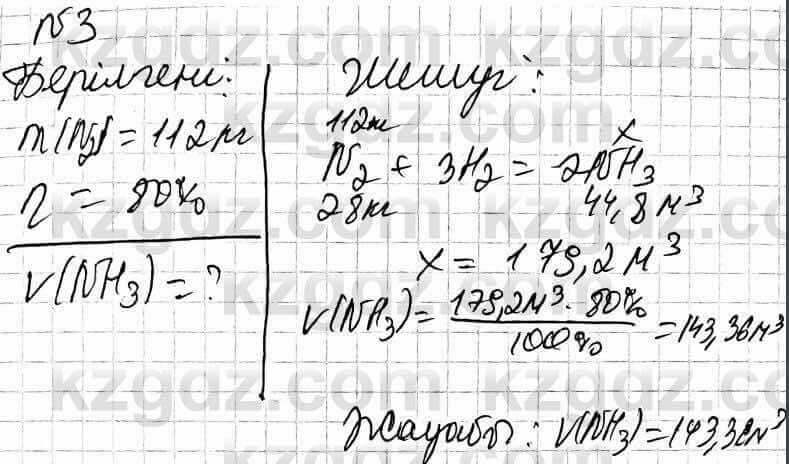 N3
Берілгені:
m(N₂) = 112 кг
η = 80%
V(NH₃) = ?
Шешуі:
112 кг x
N₂ + 3H₂ = 2NH₃
28 кг 44,8 м³
x = 179,2 м³
V(NH₃) = 179,2 м³ · 80% / 100% = 143,36 м³
Жауабы: V(NH₃) = 143,36 м³
kzgdz.com